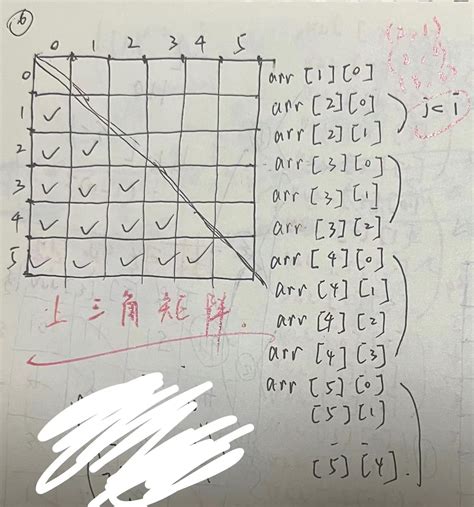 6
0 1 2 3 4 5
0
1 ✓
2 ✓ ✓
3 ✓ ✓ ✓
4 ✓ ✓ ✓ ✓
5 ✓ ✓ ✓ ✓ ✓
上三角矩阵
arr [1] [0]
arr [2] [0]
arr [2] [1]
j < i
arr [3] [0]
arr [3] [1]
arr [3] [2]
arr [4] [0]
arr [4] [1]
arr [4] [2]
arr [4] [3]
arr [5] [0]
[5] [1]
[5] [4]